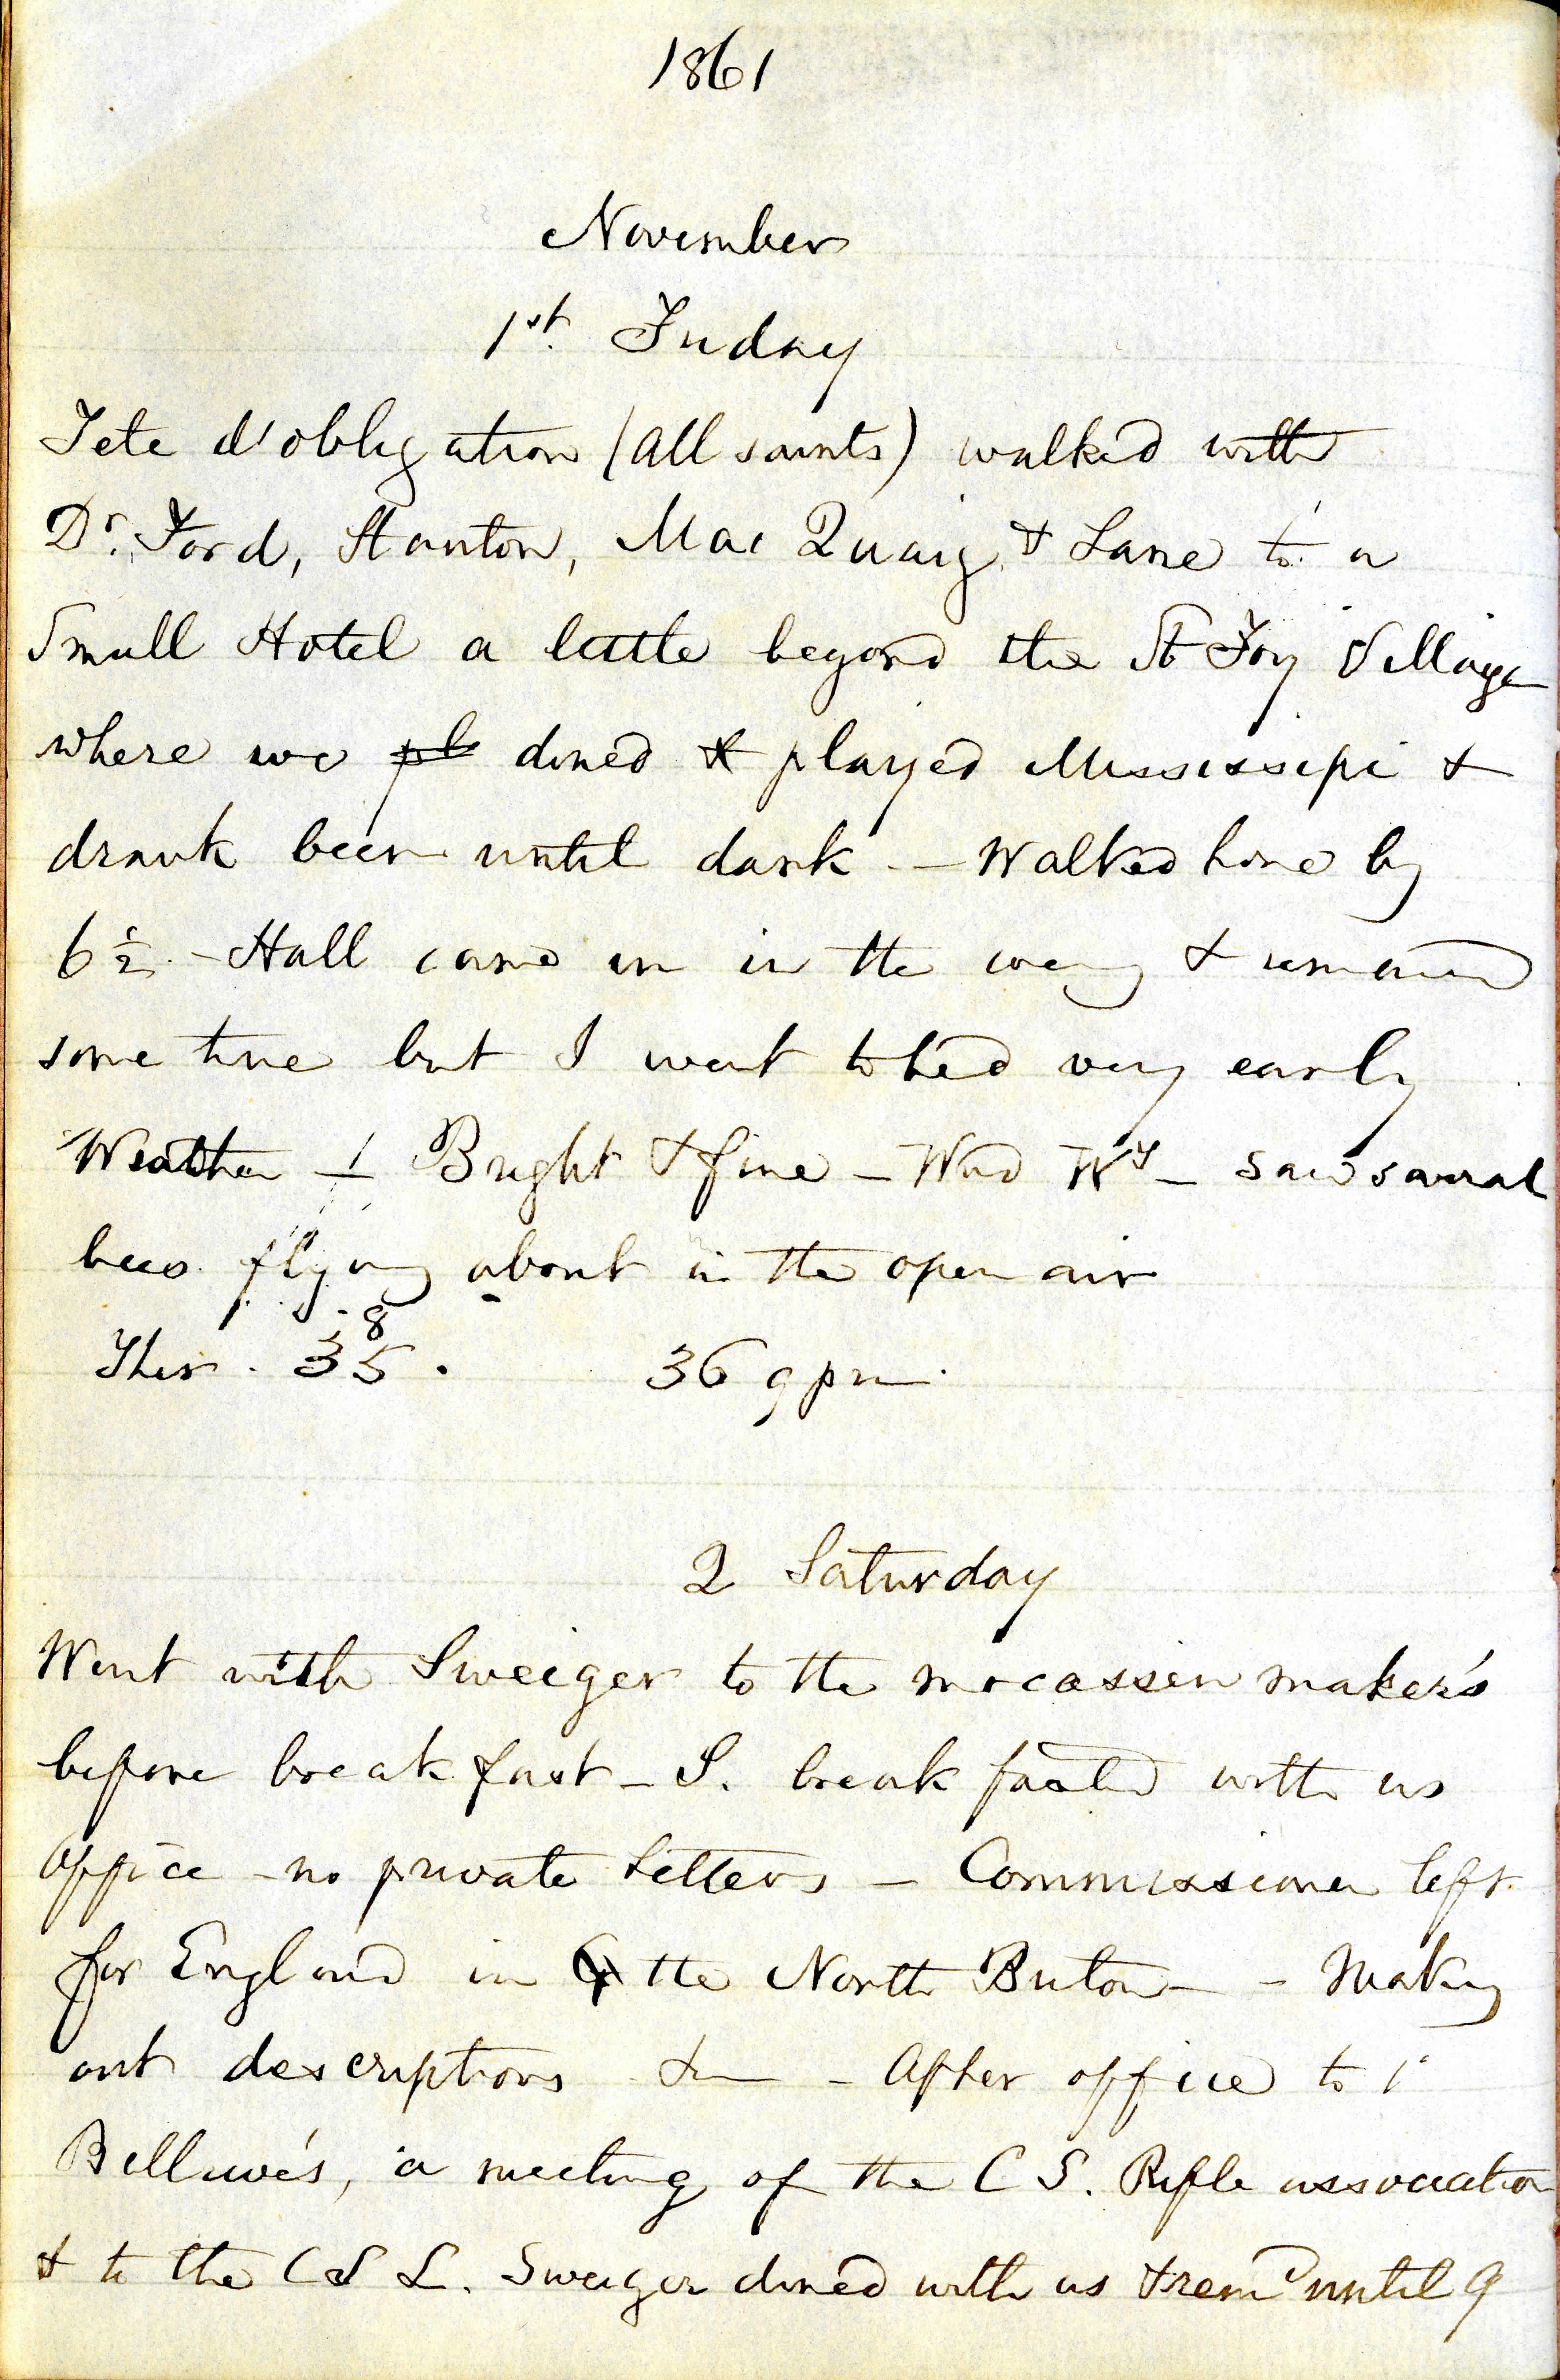 1861
November
1st. Friday
Fete d'obligation (all saints) walked with
Dr. Ford, Stanton, Mac Quaig, & Lane to a
Small Hotel a little beyond the St Foy Village
where we pl dined & played Mississipi &
drank beer until dark - Walked home by
6½. - Hall came in in the eveng & remained
some time but I went to bed very early
Weather - Bright & fine - Wind Wy - Saw several
bees flying about in the open air
Ther. 35 8. 36 9 pm.
2 Saturday
Went with Sweiger to the mocassin maker's
before breakfast - S. breakfasted with us
Office - no private letters - Commissioner left
for England in the North Briton - Making
out descriptions &c - After office to
Belluve's, a meeting of the C S. Rifle association
& to the C S L. Sweiger dined with us & remd until 9